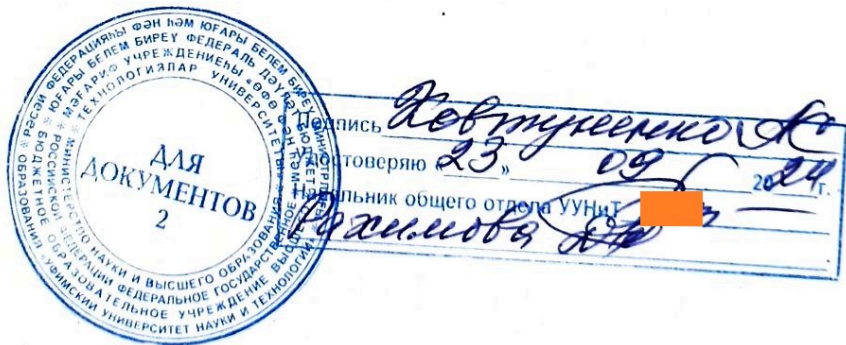 РӘСӘЙ ФЕДЕРАЦИЯҺЫ ФӘН ҺӘМ ЮҒАРЫ БЕЛЕМ БИРЕҮ МИНИСТРЛЫҒЫ
ЮҒАРЫ БЕЛЕМ БИРЕҮ ФЕДЕРАЛЬ ДӘҮЛӘТ БЮДЖЕТ
МӘҒАРИФ УЧРЕЖДЕНИЕҺЫ «ӨФӨ ФӘН ҺӘМ
ТЕХНОЛОГИЯЛАР УНИВЕРСИТЕТЫ»
МИНИСТЕРСТВО НАУКИ И ВЫСШЕГО ОБРАЗОВАНИЯ
РОССИЙСКОЙ ФЕДЕРАЦИИ ФЕДЕРАЛЬНОЕ ГОСУДАРСТВЕННОЕ
БЮДЖЕТНОЕ ОБРАЗОВАТЕЛЬНОЕ УЧРЕЖДЕНИЕ ВЫСШЕГО
ОБРАЗОВАНИЯ «УФИМСКИЙ УНИВЕРСИТЕТ НАУКИ И ТЕХНОЛОГИЙ»
ДЛЯ
ДОКУМЕНТОВ
2
Подпись Ковтуненко АС
Удостоверяю «23» 09 2024г.
Начальник общего отдела УУНиТ
Рахимова